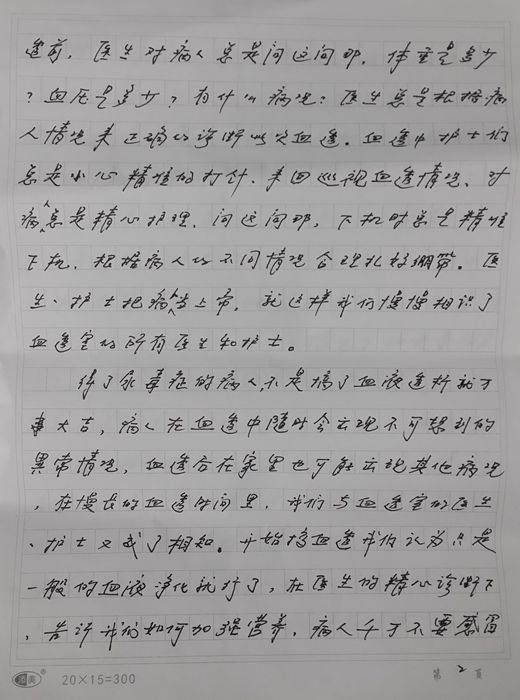 透前，医生对病人总是问这问那，体重是多少
？血压是多少？有什么病况？医生总是根据病
人情况来正确的诊断此次血透。血透中护士们
总是小心精准的打针、来回巡视血透情况、对
病人总是精心护理，问这问那，下机时总是精准
下机，根据病人的不同情况合理扎好绷带。医
生、护士把病人当上帝，就这样我们慢慢相识了
血透室的所有医生和护士。
得了尿毒症的病人，不是搞了血液透析就万
事大吉，病人在血透中随时会出现不可想到的
異常情况，血透后在家里也可能出现其他病况
，在慢长的血透时间里，我们与血透室的医生
、护士又成了相知。开始搞血透我们认为只是
一般的血液净化就行了，在医生的精心诊断下
、告诉我们如何加强营养，病人千万不要感冒
20×15=300
第 2 页